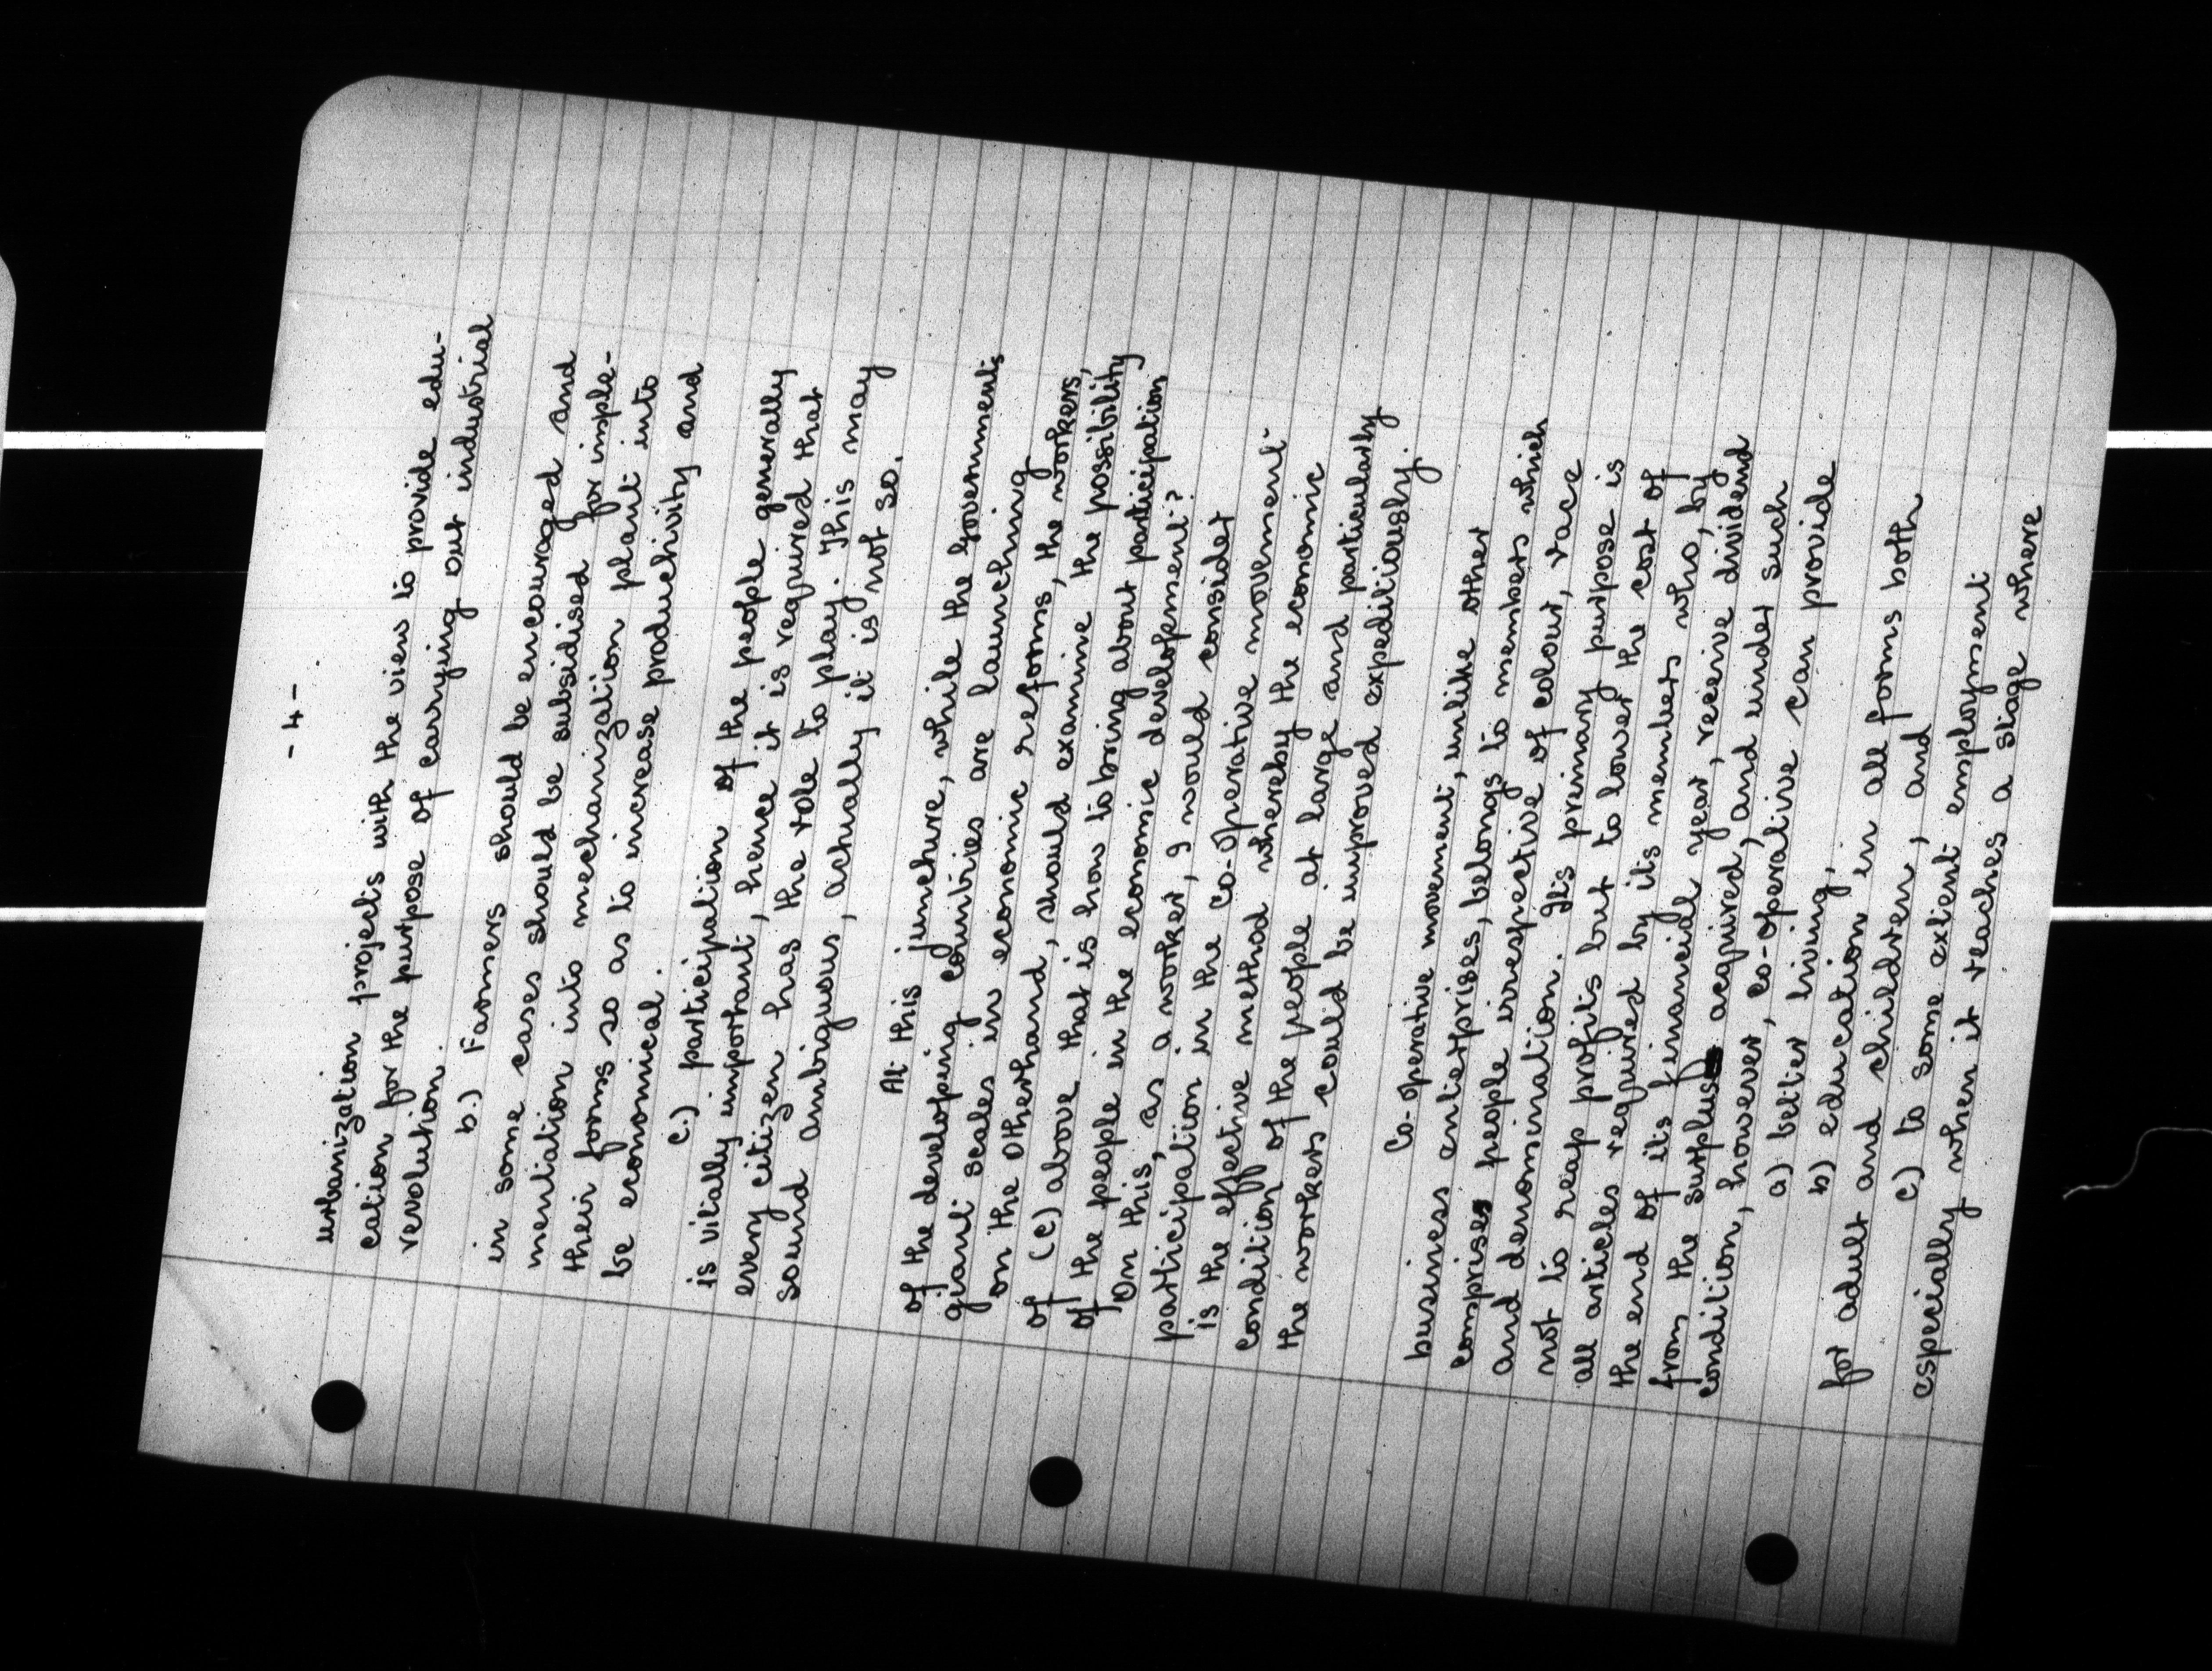 - 4 -
urbanization projects with the view to provide edu-
cation for the purpose of carrying out industrial
revolution.
b.) Farmers should be encouraged and
in some cases should be subsidised for imple-
mentation into mechanization plant into
their farms so as to increase productivity and
be economical.
c.) participation of the people generally
is vitally important, hence it is required that
every citizen has the role to play. This may
sound ambiguous, actually it is not so.
At this juncture, while the Governments
of the developing countries are launching
giant scales in economic reforms, the workers,
on the otherhand, should examine the possibility
of (c) above that is how to bring about participation
of the people in the economic development?
On this, as a worker, I would consider
participation in the Co-operative movement
is the effective method whereby the economic
condition of the people at large and particularly
the workers could be improved expeditiously.
Co-operative movement, unlike other
business enterprises, belongs to members which
comprises people irrespective of colour, race
and denomination. Its primary purpose is
not to reap profits but to lower the cost of
all articles required by its members who, by
the end of its financial year, receive dividend
from the surplus acquired, and under such
condition, however, co-operative can provide
a) better living,
b) education in all forms both
for adult and children, and
c) to some extent employment
especially when it reaches a stage where